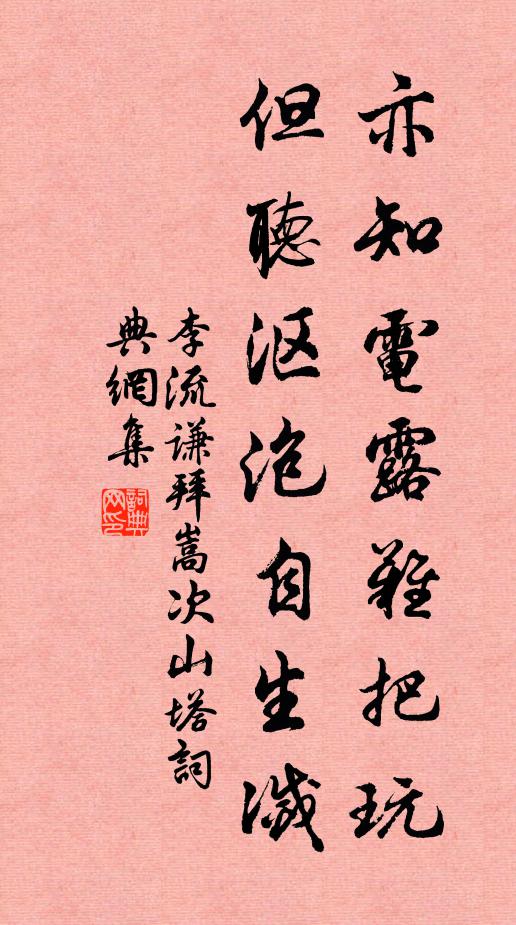 亦知電露難把玩
但聽漚泡自生滅
李流謙拜嵩次山塔詞
典網集
詞典網印